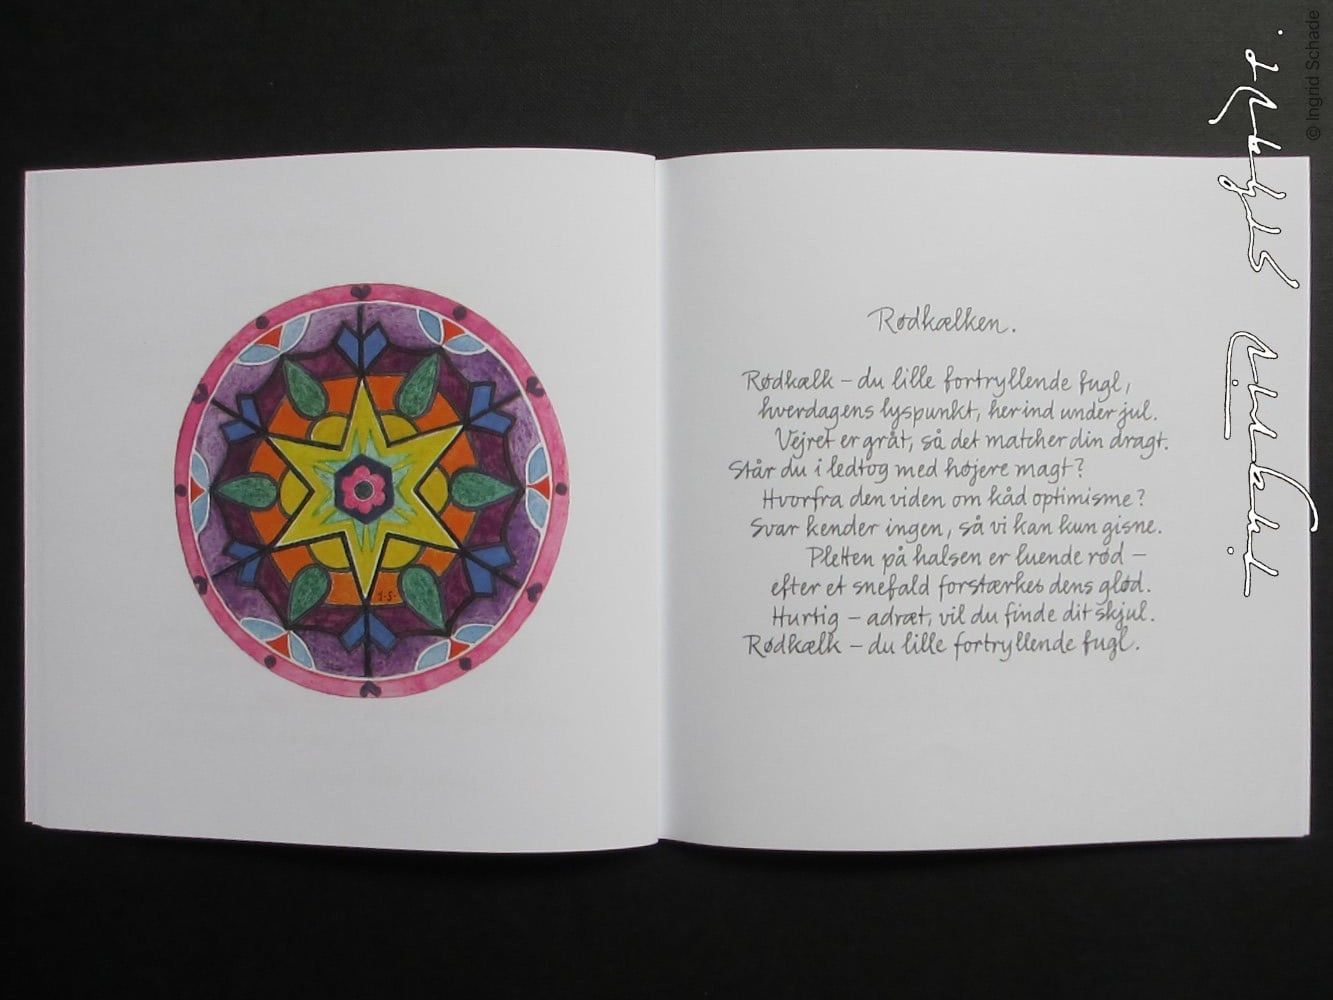 I.S.
Rødkælken.
Rødkælk – du lille fortryllende fugl,
hverdagens lyspunkt, herind under jul.
Vejret er gråt, så det matcher din dragt.
Står du i ledtog med højere magt?
Hvorfra den viden om kåd optimisme?
Svar kender ingen, så vi kan kun gisne.
Pletten på halsen er luende rød –
efter et snefald forstærkes dens glød.
Hurtig – adræt, vil du finde dit skjul.
Rødkælk – du lille fortryllende fugl.
© Ingrid Schade